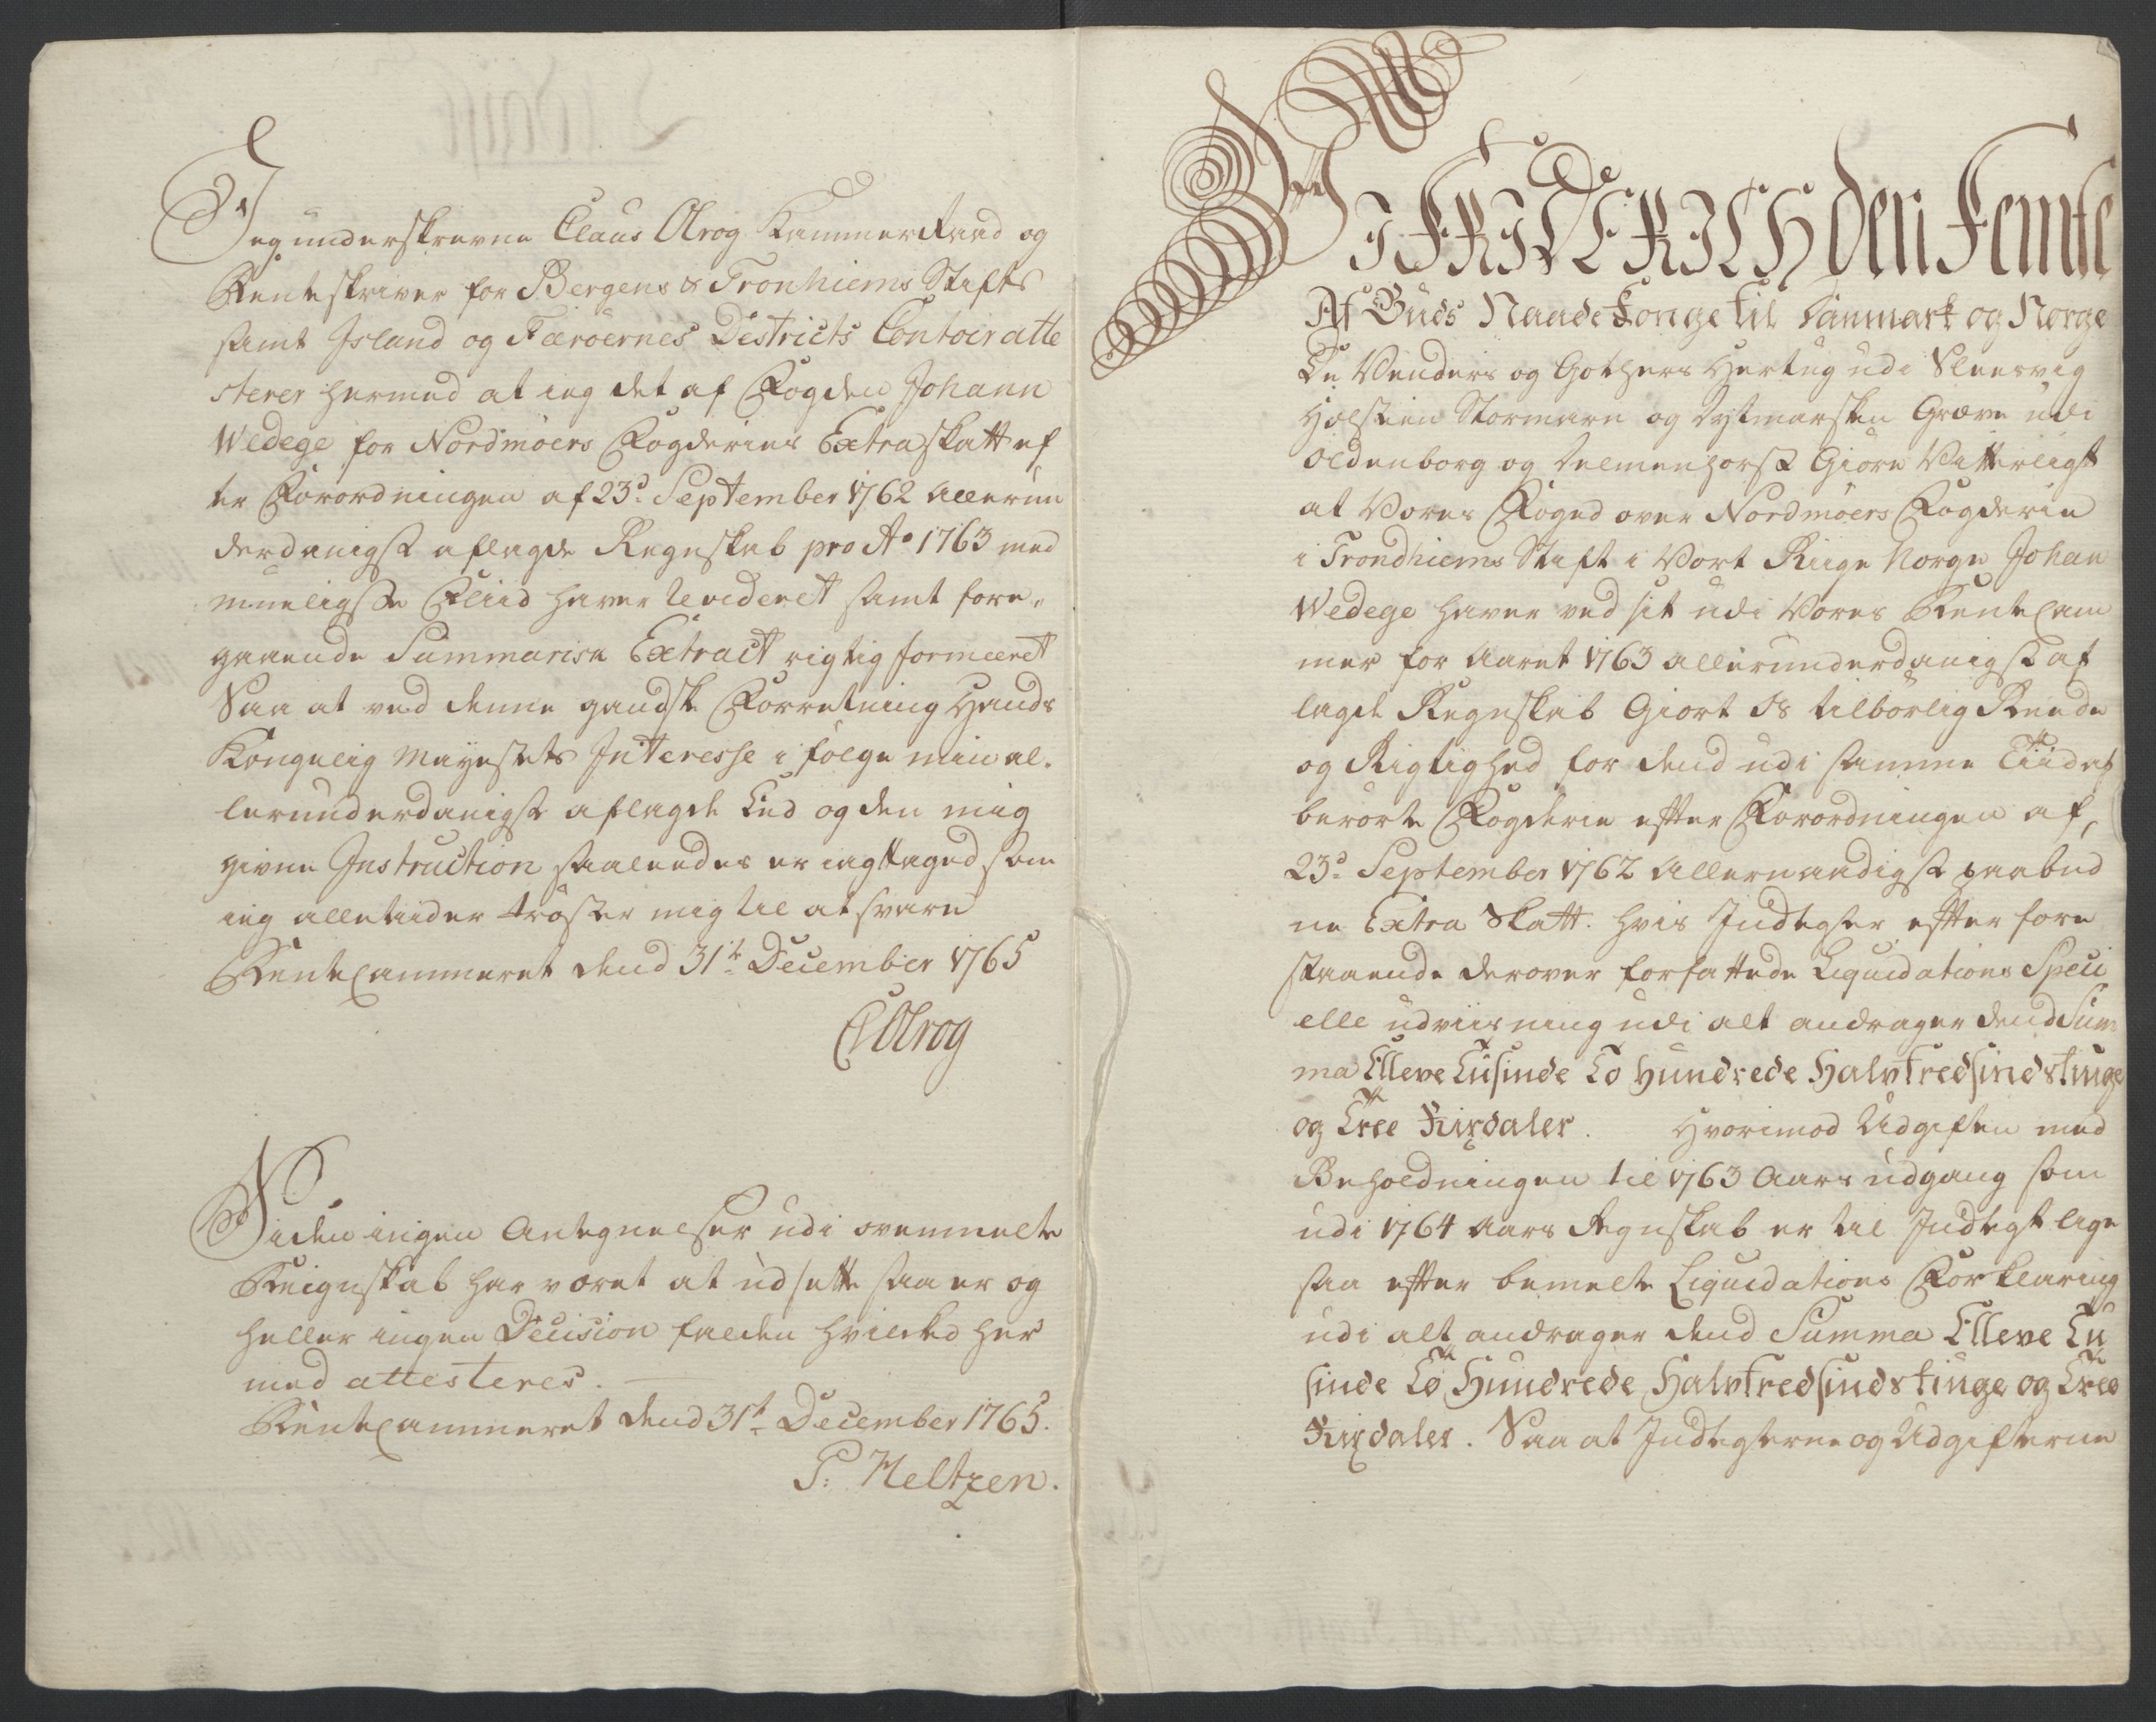 Jeg underskrevne Claus Olrog Kammerraad og
Renteskriver for Bergens & Tronhiems Stifts
samt Jsland og Færöernes Districts Contoir atte
sterer hermed at ieg det af Fogden Johann
Wedege for Nordmöers Fogderies Extra skatt ef
ter Forordningen af 23d: September 1762 allerun
derdanigst aflagde Regnskab pro Ao 1763 med
mueligste Fliid haver Revideret samt fore-
gaaende Summariske Extract rigtig formeeret
Saa at ved denne gandske Forretning Hands
Kongelig Mayestets Jnteresse i fölge min al-
lerunderdanigst aflagde Eed og den mig
givne Jnstruction saaleedes er iagttaged som
ieg alletiider tröster mig til at svare
RenteCammeret dend 31te December 1765
COlrog
Siden ingen Antegnelser udi ovenmelte
Reignskab har været at udsette saa er og
heller ingen Decision falden hvilcked her
med attesteres.
RenteCammeret dend 31t December 1765.
P: Meltzen.
WI FRIDERICH den Femte
Af Guds Naade Konge til Danmark og Norge
De Venders og Gothers Hertug udi Sleesvig
Holsteen Stormarn og Dytmarsken Greve udi
Oldenborg og Delmenhorst Giöre Vitterligt
at Vores Foged over Nordmöers Fogderie
i Trondhiems Stift i Vort Riige Norge Johan
Wedege haver ved sit udi Vores RenteCam
mer for Aaret 1763 allerunderdanigst af
lagde Regnskab Giort Os tilbörlig Reede
og Rigtighed for dend udi samme Tiid af
berörte Fogderie efter Forordningen af,
23d: September 1762 Allernaadigst paabud
ne Extra Skatt. hvis Jndtegter efter fore
staaende derover forfattede Liquidations Speci
elle udviisning udi alt andrager dend Sum
ma Elleve Tusinde To Hundrede Halvtredsindstiuge
og Tree Rixdaler. Hvorimod Udgiften med
Beholdningen til 1763 Aars udgang som
udi 1764 Aars Regnskab er til Jndtegt lige
saa efter bemelte Liquidations Forklaring
udi alt andrager dend Summa Elleve Tu
sinde To Hundrede Halvtredsindstiuge og Tree
Rixdaler. Saa at Jndtegterne og Udgifterne